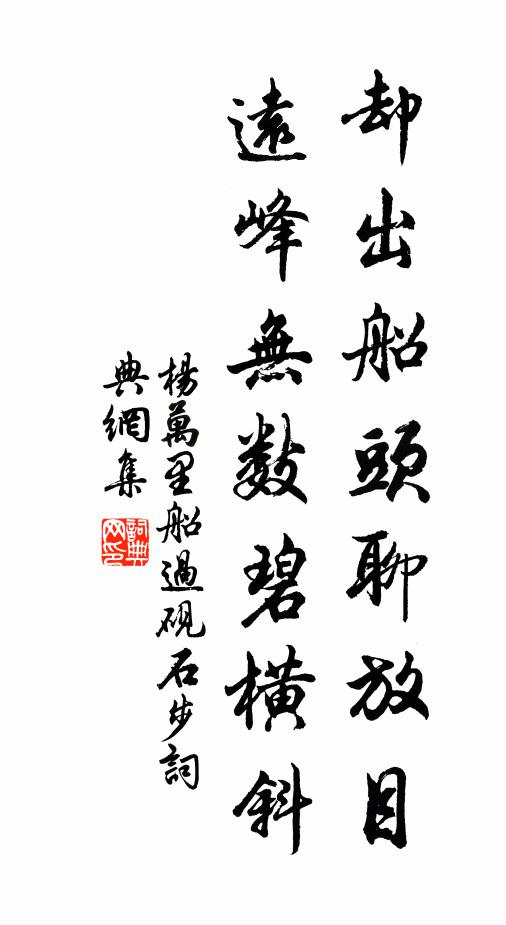 却出船頭聊放目
遠峰無数碧橫斜
楊萬里船過硯石步詞
典網集
詞典
网印